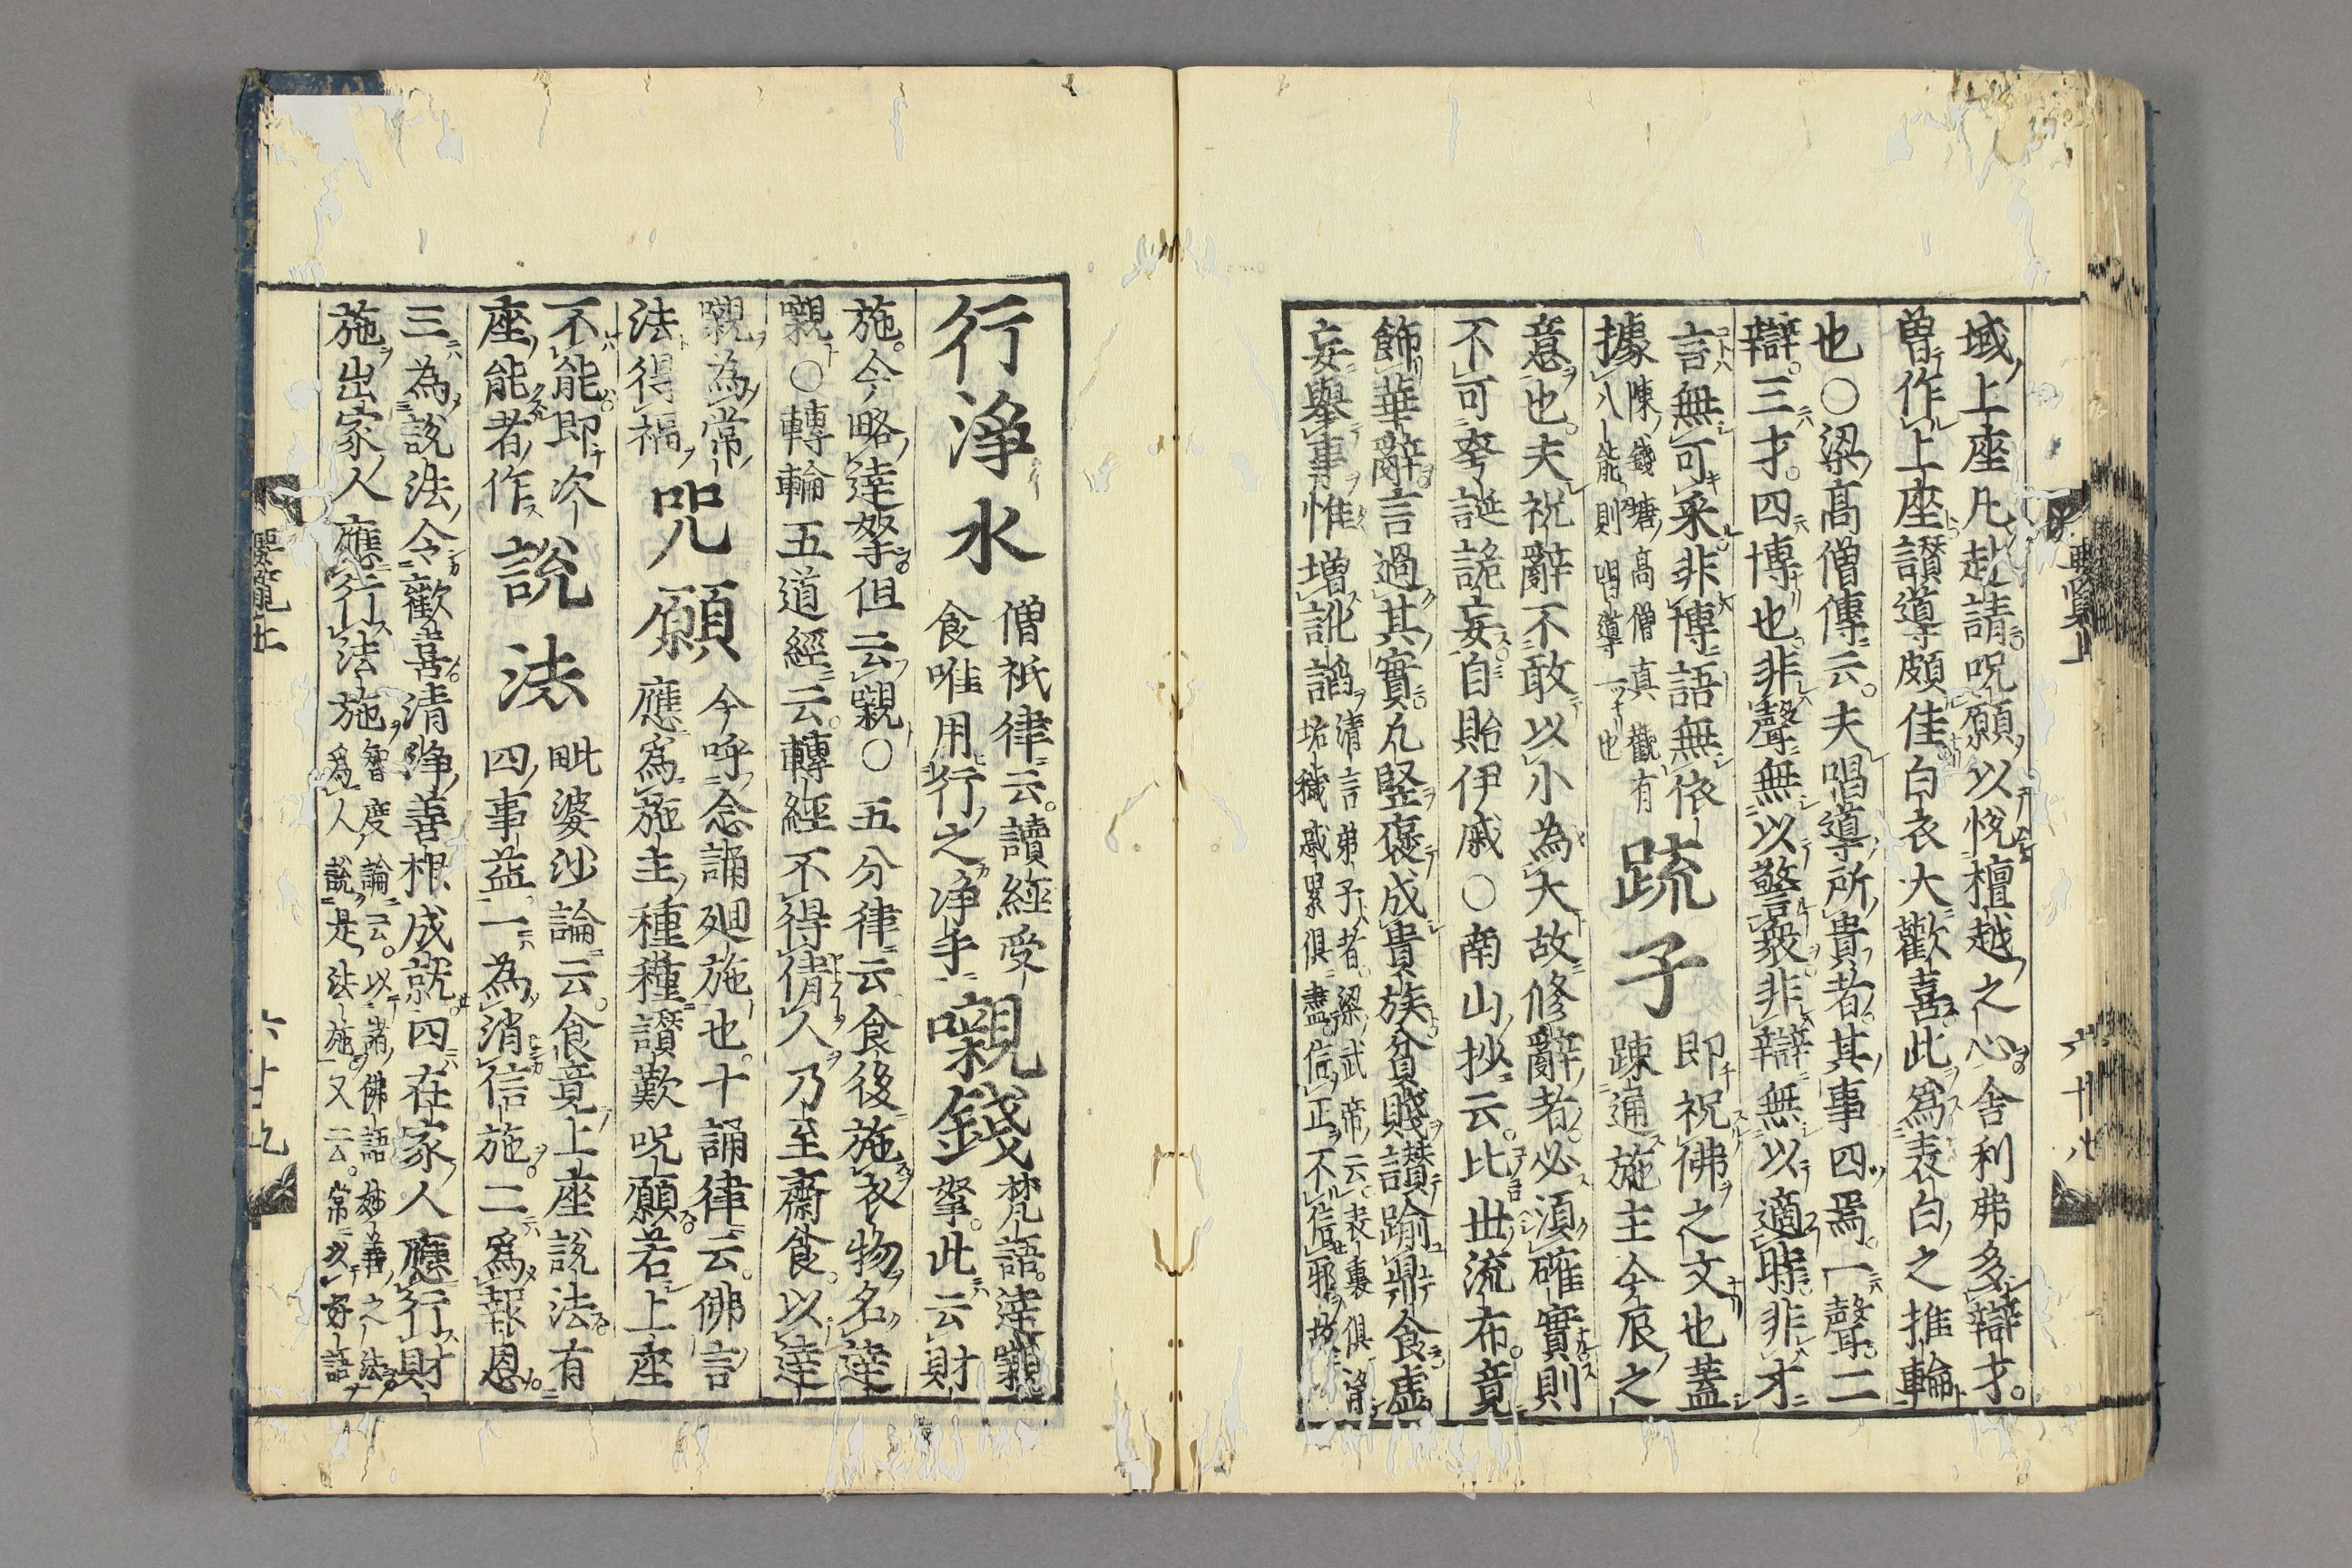 域上座凡赴請呪願以悅檀越之心舍利弗多辯才
曽作上座讃導頗佳白衣大歡喜此爲表白之推輪
也○梁高僧傳云夫唱導所貴者其事四焉一聲二
辯三才四博也非聲無以警衆非辯無以適時非才
言無可采非博語無依
據
陳錢塘高僧真觀有
八能則唱導一也
疏子
即祝佛之文也蓋
踈通施主今辰之
意也夫祝辭不敢以小為大故修辭者必湏確實則
不可夸誕詭妄自貽伊戚○南山抄云比世流布竟
飾華辭言過其實凢竪褒成貴族貧賤讃踰鼎食虛
妄舉事惟増訛謟
清言弟子者梁武帝云表裏俱淨
垢穢戚累俱盡信正不信邪故
行淨水
僧祇律云讀經受
食唯用行之淨手
嚫錢
梵語達嚫
拏此云財
施今略達拏但云嚫○五分律云食後施衣物名達
嚫○轉輪五道經云轉經不得倩人乃至齋食以達
嚫為常
法得福
呪願
今呼念誦廻施也十誦律云佛言
應爲施主種種讃歎呪願若上座
不能即次
座能者作
説法
毗婆沙論云食竟上座說法有
四事益一為消信施二爲報恩
三為說法令歡喜清淨善根成就四在家人應行財
施出家人應行法施
智度論云以諸佛語妙善之法
爲人說是法施又云常以好語
要覧上
六十九